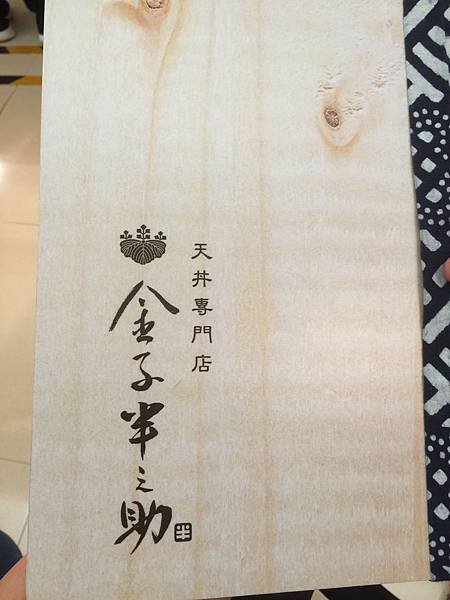 天丼専門店
金子半之助
半